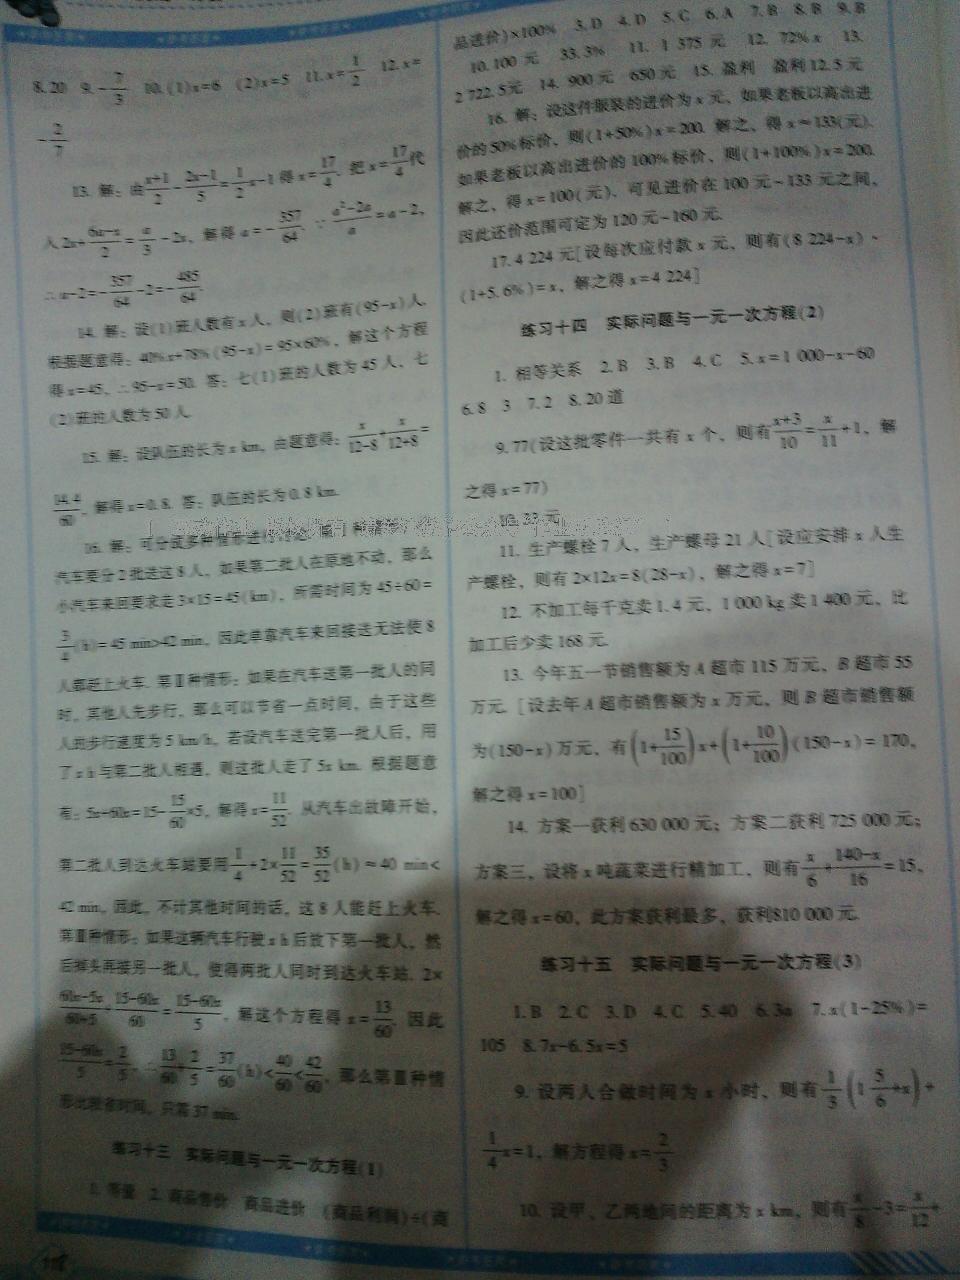 8. 20 9. -7/3 10. (1)x=6 (2)x=5 11. x=1/2 12. x=
-2/7
13. 解：由(x+1)/2-(2x-1)/5=1/2x-1得x=17/4. 把x=17/4代
入2x+(6a-x)/2=a/3-2x，解得a=-357/64. ∵(a²-2a)/a=a-2，
∴a-2=-357/64-2=-485/64.
14. 解：设(1)班人数有x人，则(2)班有(95-x)人.
根据题意得：40%x+78%(95-x)=95×60%，解这个方程
得x=45，∴95-x=50. 答：七(1)班的人数为45人，七
(2)班的人数为50人.
15. 解：设队伍的长为x km，由题意得：x/(12-8)+x/(12+8)=
14.4/60，解得x=0.8. 答：队伍的长为0.8 km.
16. 解：可分成多种情形进行
汽车要分2批送这8人，如果第二批人在原地不动，那么
小汽车来回要求走3×15=45(km)，所需时间为45÷60=
3/4(h)=45 min>42 min，因此单靠汽车来回接送无法使8
人都赶上火车. 第Ⅱ种情形：如果在汽车送第一批人的同
时，其他人先步行，那么可以节省一点时间，由于这些
人的步行速度为5 km/h，若设汽车送完第一批人后，用
了x h与第二批人相遇，则这批人走了5x km. 根据题意
有：5x+60x=15-15/60×5，解得x=11/52. 从汽车出故障开始，
第二批人到达火车站要用1/4+2×11/52=35/52(h)≈40 min<
42 min，因此，不计其他时间的话，这8人能赶上火车.
第Ⅲ种情形：如果这辆汽车行驶x h后放下第一批人，然
后掉头再接另一批人，使得两批人同时到达火车站. 2×
(60x-5x)/(60+5)+(15-60x)/60=(15-60x)/5，解这个方程得x=13/60. 因此
(15-60x)/5=2/5，∴13/60+2/5=37/60(h)<40/60<42/60，那么第Ⅲ种情
形比较省时间，只需37 min.
练习十三 实际问题与一元一次方程(1)
1. 等量 2. 商品售价 商品进价 (商品利润)÷(商
品进价)×100% 3. D 4. D 5. C 6. A 7. B 8. B 9. B
10. 100元 33.3% 11. 1 375元 12. 72%x 13.
2 722.5元 14. 900元 650元 15. 盈利 盈利12.5元
16. 解：设这件服装的进价为x元，如果老板以高出进
价的50%标价，则(1+50%)x=200. 解之，得x≈133(元).
如果老板以高出进价的100%标价，则(1+100%)x=200.
解之，得x=100(元). 可见进价在100元~133元之间，
因此还价范围可定为120元~160元.
17. 4 224元[设每次应付款x元，则有(8 224-x)·
(1+5.6%)=x，解之得x=4 224]
练习十四 实际问题与一元一次方程(2)
1. 相等关系 2. B 3. B 4. C 5. x=1 000-x-60
6. 8 3 7. 2 8. 20道
9. 77(设这批零件一共有x个，则有(x+3)/10=x/11+1，解
之得x=77)
10. 33元
11. 生产螺栓7人，生产螺母21人[设应安排x人生
产螺栓，则有2×12x=8(28-x)，解之得x=7]
12. 不加工每千克卖1.4元，1 000 kg卖1 400元，比
加工后少卖168元.
13. 今年五一节销售额为A超市115万元，B超市55
万元. [设去年A超市销售额为x万元，则B超市销售额
为(150-x)万元，有(1+15/100)x+(1+10/100)(150-x)=170，
解之得x=100]
14. 方案一获利630 000元；方案二获利725 000元；
方案三，设将x吨蔬菜进行精加工，则有x/6+(140-x)/16=15，
解之得x=60，此方案获利最多，获利810 000元.
练习十五 实际问题与一元一次方程(3)
1. B 2. C 3. D 4. C 5. 40 6. 3a 7. x(1-25%)=
105 8. 7x-6.5x=5
9. 设两人合做时间为x小时，则有1/3(1 5/6+x)+
1/4x=1，解方程得x=2/3
10. 设甲、乙两地间的距离为x km，则有x/8-3=x/12+